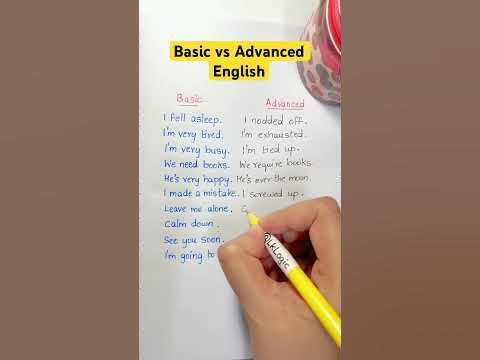 Basic vs Advanced
English
Basic Advanced
I fell asleep. I nodded off.
I'm very tired. I'm exhausted.
I'm very busy. I'm tied up.
We need books. We require books.
He's very happy. He's over the moon.
I made a mistake. I screwed up.
Leave me alone. G
Calm down.
See you soon.
I'm going to
@LkLogic